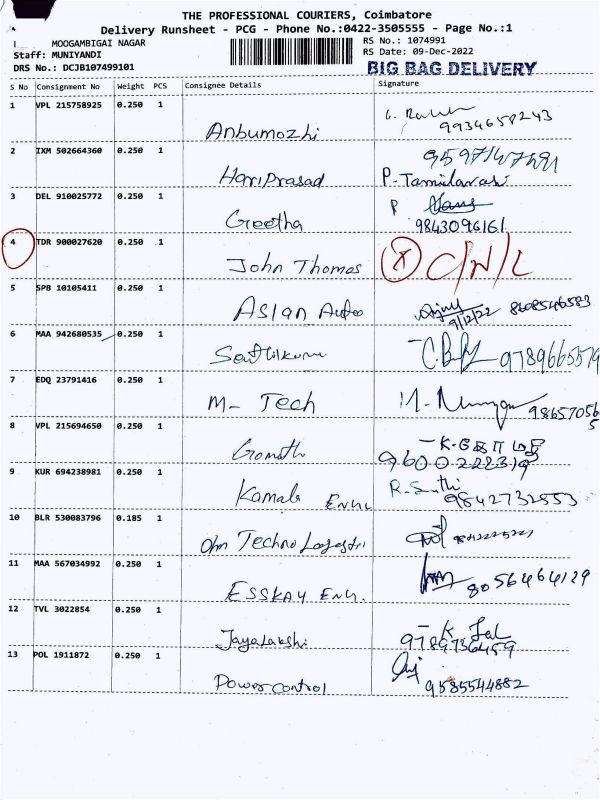 THE PROFESSIONAL COURIERS, Coimbatore
Delivery Runsheet - PCG - Phone No.:0422-3505555 - Page No.:1
MOOGAMBIGAI NAGAR RS No.: 1074991
Staff: MUNIYANDI RS Date: 09-Dec-2022
DRS No.: DCJB107499101 BIG BAG DELIVERY
S No Consignment No Weight PCS Consignee Details Signature
1 VPL 215758925 0.250 1
Anbumozhi 9934658243
2 IXM 502664360 0.250 1
HariPrasad P. Tamilarasi
3 DEL 910025772 0.250 1 P
Geetha 9843096161
4 TDR 900027620 0.250 1
John Thomas X C/N/L
5 SPB 10105411 0.250 1
Asian Auto 9/12/22 8608546583
6 MAA 942680535 0.250 1
9789665579
7 EDQ 23791416 0.250 1
M- Tech 98657056
5
8 VPL 215694650 0.250 1
9600222319
9 KUR 694238981 0.250 1
Kamal Engg R. Suthi 9842732553
10 BLR 530083796 0.185 1
Ohm Techno
11 MAA 567034992 0.250 1
ESSKAY ENG. 8056464129
12 TVL 3022854 0.250 1
9789736459
13 POL 1911872 0.250 1
Powercontrol 9585544882